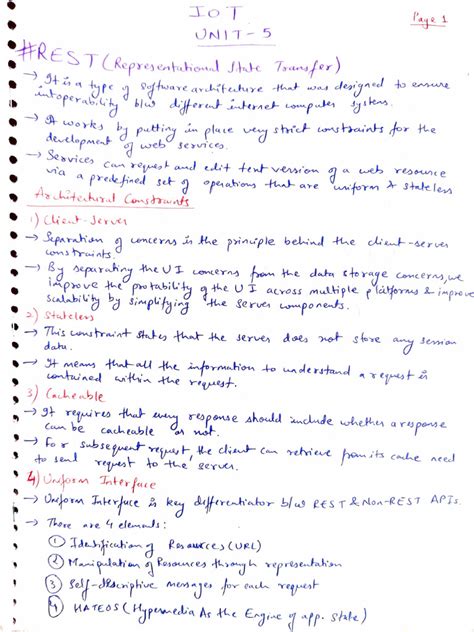 IOT
Page 1
UNIT-5
#REST (Representational State Transfer)
→ It is a type of software architecture that was designed to ensure
intoperability b/w different internet computer systems.
→ It works by putting in place very strict constraints for the
development of web services.
→ Services can request and edit text version of a web resource
via a predefined set of operations that are uniform & stateless
Architectural Constraints
1) Client-Server
→ Separation of concerns is the principle behind the client-server
constraints.
→ By separating the UI concerns from the data storage concerns, we
improve the protability of the UI across multiple platforms & improve
scalability by simplifying the server components.
2) Stateless
→ This constraint states that the server does not store any session
data.
→ It means that all the information to understand a request is
contained within the request.
3) Cacheable
→ It requires that every response should include whether a response
can be cacheable or not.
→ For subsequent request, the client can retrieve from its cache need
to send request to the server.
4) Uniform Interface
→ Uniform Interface is key differentiator b/w REST & Non-REST APIs.
→ There are 4 elements:
① Identification of Resources (URL)
② Manipulation of Resources through representation
③ Self-discriptive messages for each request
④ HATEOS (Hypermedia As the Engine of app. State)